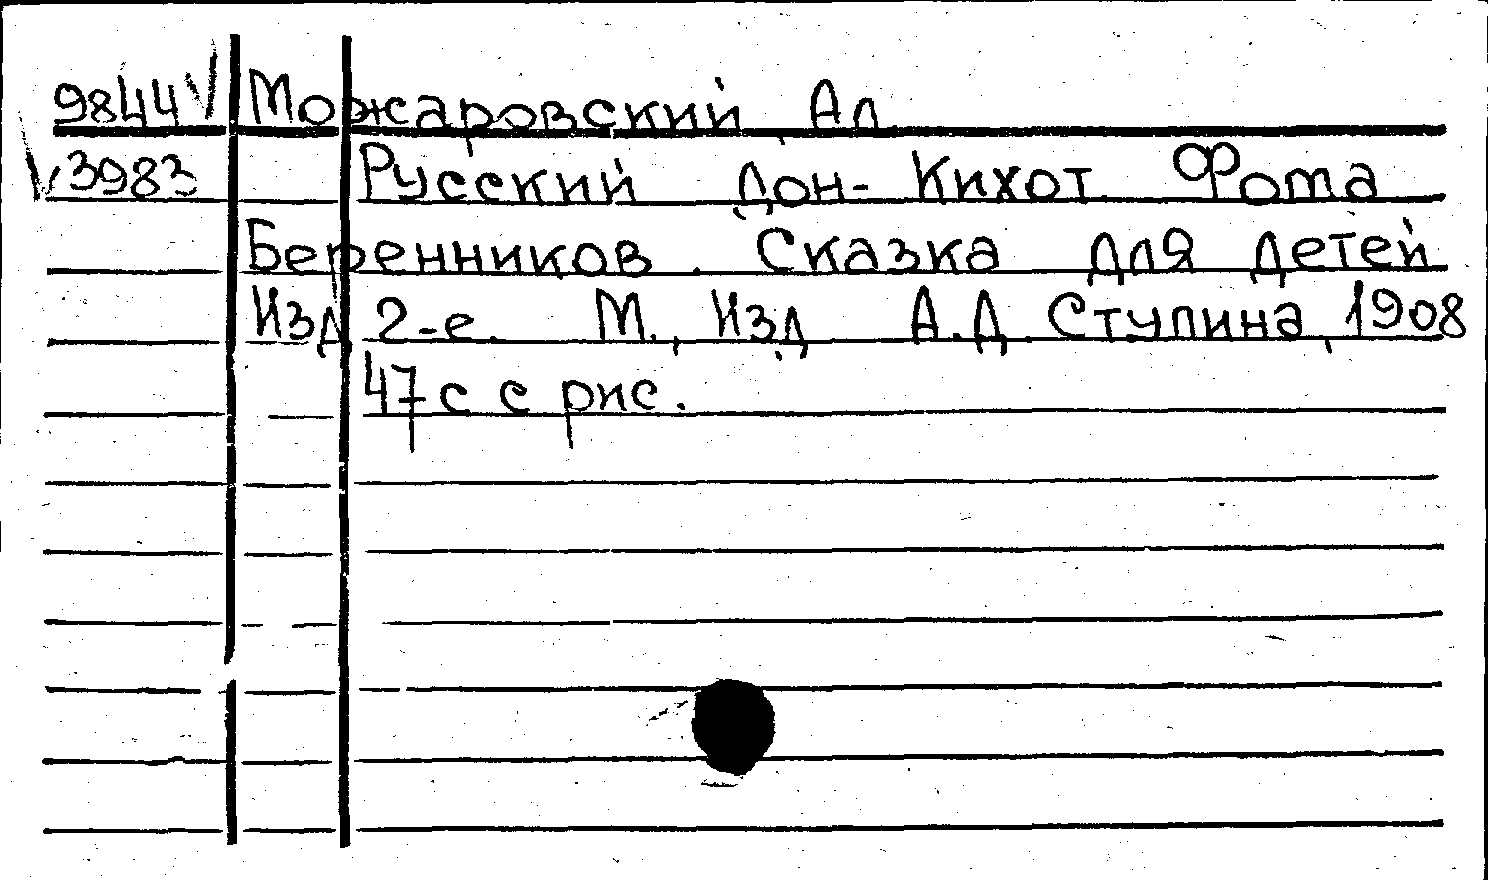 9844 Можаровский, Ал.
3983 Русский Дон-Кихот Фома
Беренников. Сказка для детей
Изд 2-е. М., Изд. А.Д. Ступина, 1908
47 с с рис.